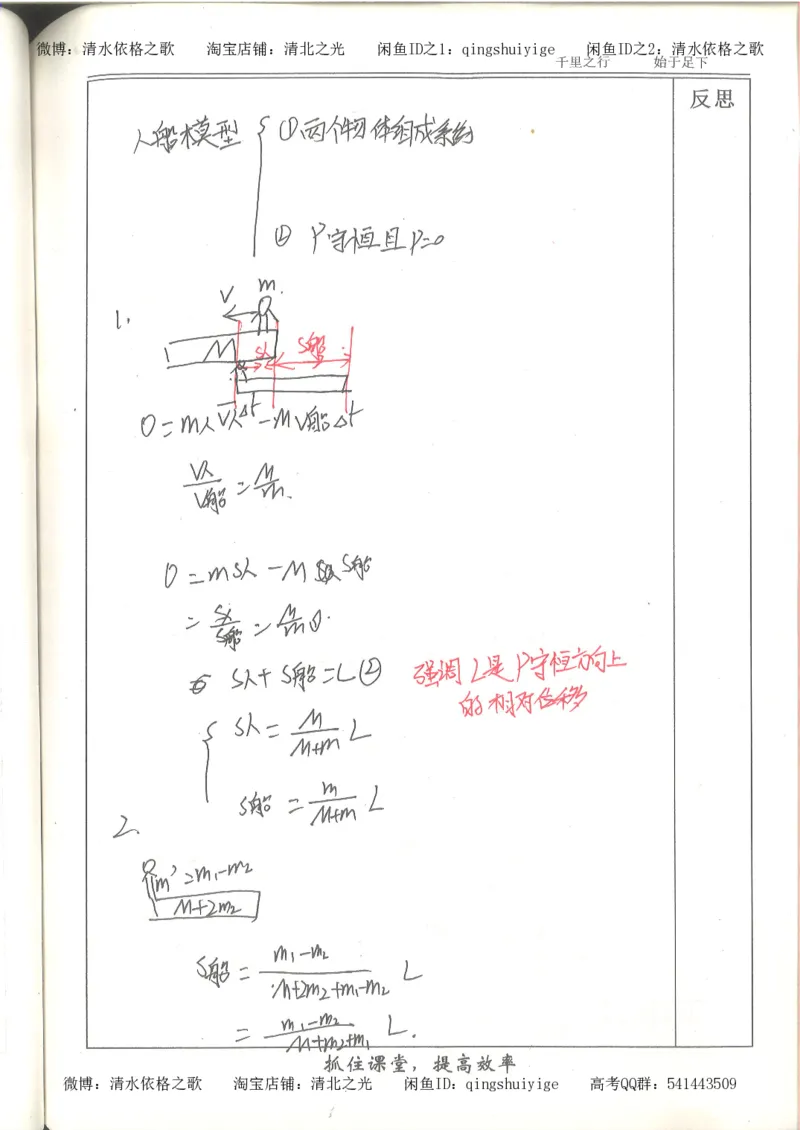 微博：清水依格之歌 淘宝店铺：清北之光 闲鱼ID之1：qingshuiyige 闲鱼ID之2：清水依格之歌
千里之行 始于足下
反思
人船模型 { ①两个物体组成系统
② P守恒且P=0
1.
V m.
M S人 S船
0=m人V人Δt-MV船Δt
V人/V船=M/m.
0=mS人-M S船
=S人/S船=M/m①.
S人+S船=L② 强调L是P守恒方向上
的相对位移
{ S人=M/(M+m) L
S船=m/(M+m) L
2.
m'=m₁-m₂
M+2m₂
S船=(m₁-m₂)/(M+2m₂+m₁-m₂) L
=(m₁-m₂)/(M+m₂+m₁) L.
抓住课堂，提高效率
微博：清水依格之歌 淘宝店铺：清北之光 闲鱼ID：qingshuiyige 高考QQ群：541443509